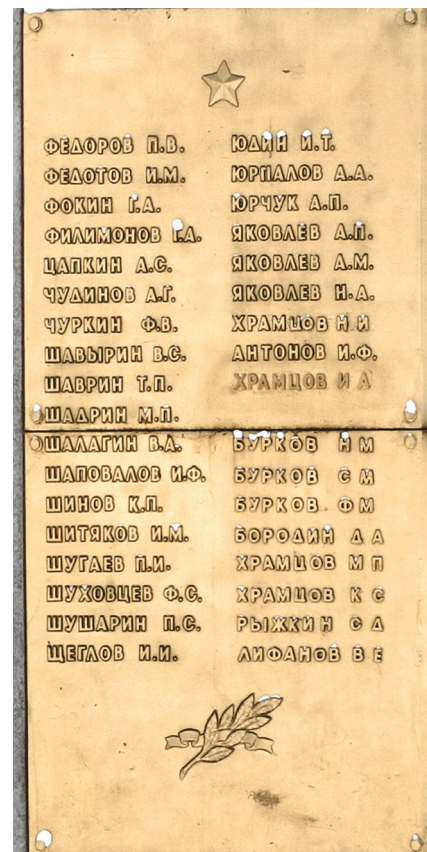 ФЕДОРОВ П.В.
ФЕДОТОВ И.М.
ФОКИН Г.А.
ФИЛИМОНОВ Г.А.
ЦАПКИН А.С.
ЧУДИНОВ А.Г.
ЧУРКИН Ф.В.
ШАВЫРИН В.С.
ШАВРИН Т.П.
ШАДРИН М.П.
ШАЛАГИН В.А.
ШАПОВАЛОВ И.Ф.
ШИНОВ К.П.
ШИТЯКОВ И.М.
ШУГАЕВ П.И.
ШУХОВЦЕВ Ф.С.
ШУШАРИН П.С.
ЩЕГЛОВ И.И.
ЮДИН И.Т.
ЮРПАЛОВ А.А.
ЮРЧУК А.П.
ЯКОВЛЕВ А.П.
ЯКОВЛЕВ А.М.
ЯКОВЛЕВ Н.А.
ХРАМЦОВ Н И
АНТОНОВ И.Ф.
ХРАМЦОВ И А
БУРКОВ Н М
БУРКОВ С М
БУРКОВ Ф М
БОРОДИН Д А
ХРАМЦОВ М П
ХРАМЦОВ К С
РЫЖКИН С Д
ЛИФАНОВ В Е